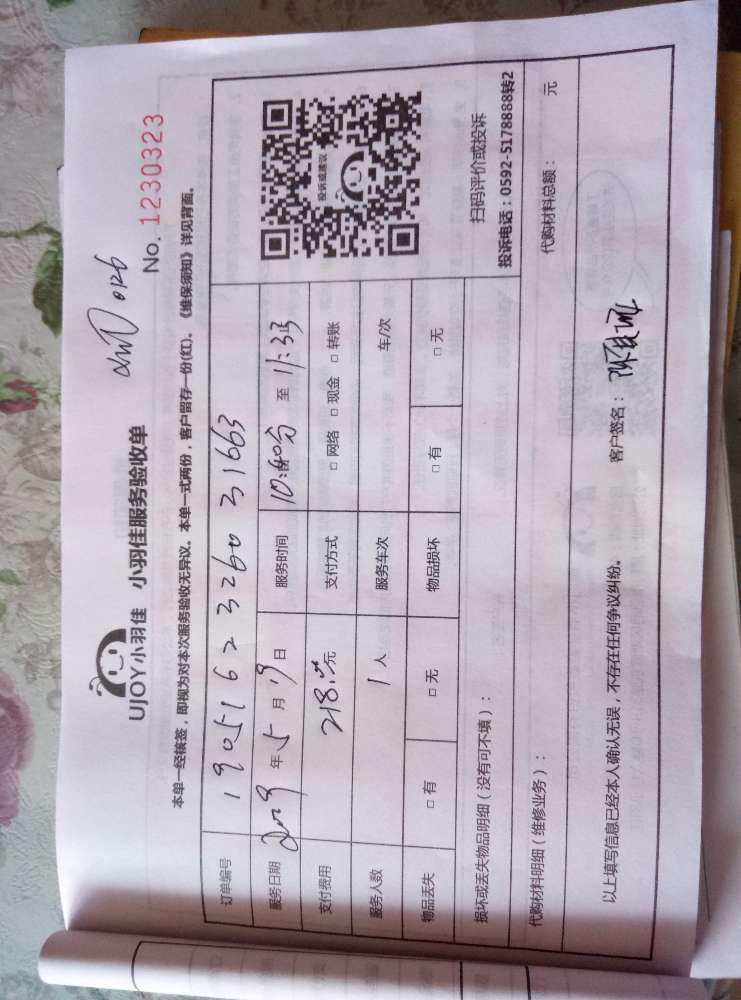 UJOY小羽佳 小羽佳服务验收单
No. 1230323
本单一经核签，即视为对本次服务验收无异议。本单一式两份，客户留存一份(红)。《维保须知》详见背面。
订单编号 190516232603 1663
服务日期 2019年5月19日 服务时间 10:40分 至 11:33
支付费用 218.00元 支付方式 □ 网络 □ 现金 □ 转账
服务人数 1 人 服务车次 车/次
物品丢失 □ 有 □ 无 物品损坏 □ 有 □ 无
投诉或建议
扫码评价或投诉
投诉电话：0592-5178888转2
损坏或丢失物品明细（没有可不填）：
代购材料明细（维修业务）： 代购材料总额： 元
以上填写信息已经本人确认无误，不存在任何争议纠纷。 客户签名：